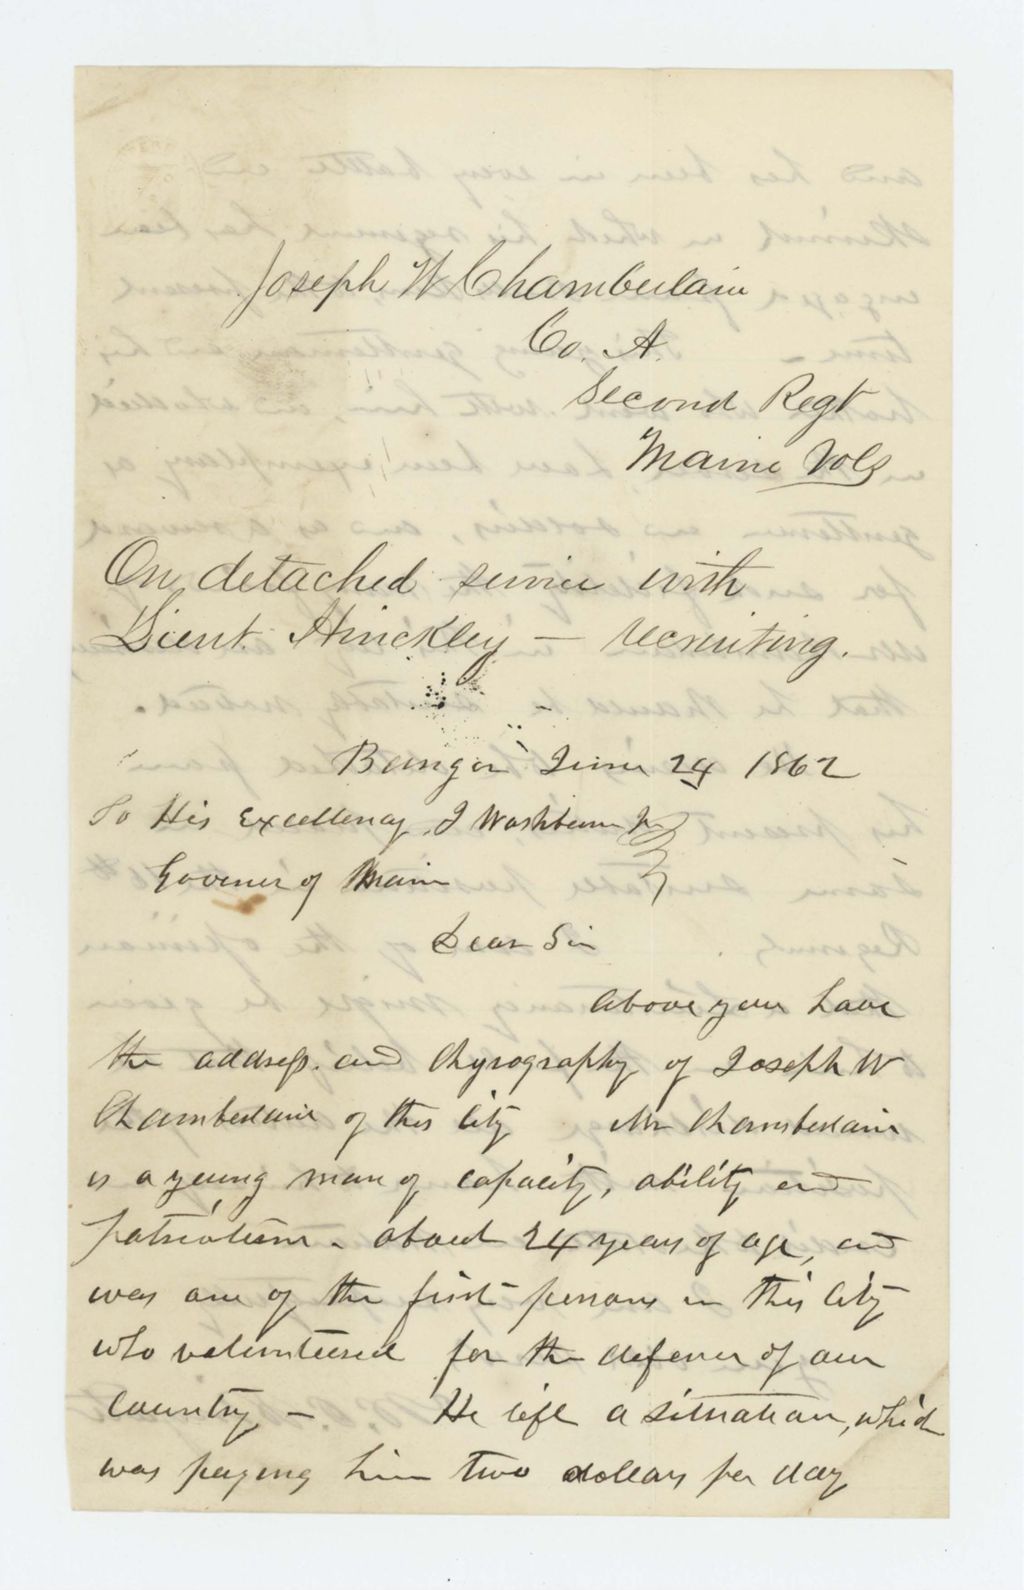 Joseph W Chamberlain
Co. A.
Second Regt
Maine Vols
On detached service with
Lieut. Hinckley — recruiting.
Bangor June 24 1862
To His Excellency, I Washburn Jr
Govener of Maine
Dear Sir
Above you have
the address. and Chyrography of Joseph W
Chamberlain of this City Mr Chamberlain
is a young man of capacity, ability and
patriotism - about 24 years of age, and
was one of the first persons in this City
who volunteered for the defence of our
Country — He left a situation, which
was paying him two dollars per day